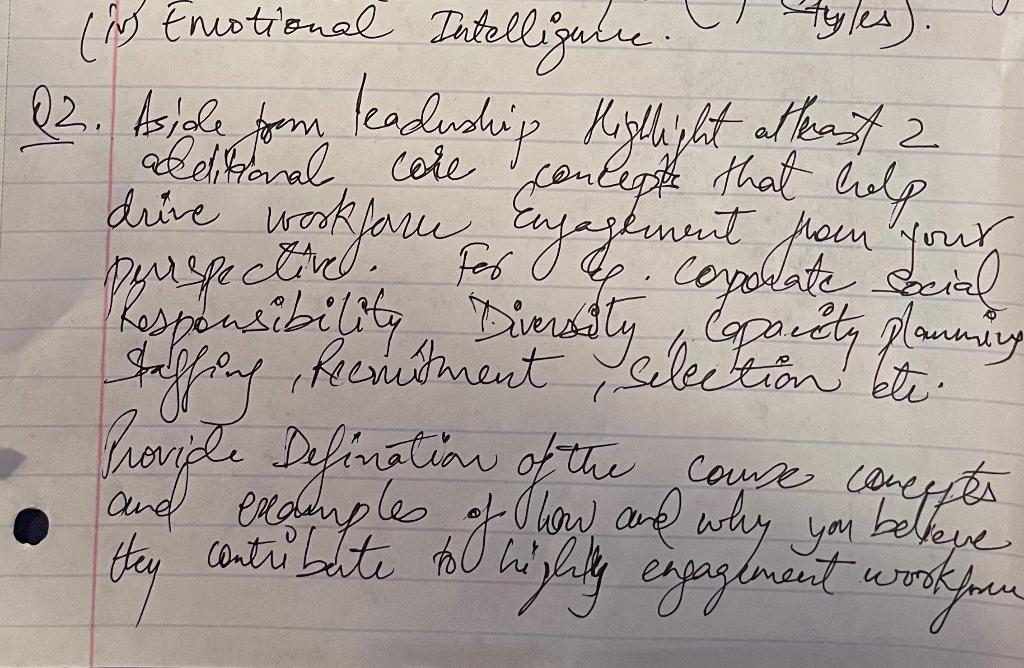 styles).
(iv) Emotional Intelligence.
Q2. Aside from leadership Highlight atleast 2
additional core concepts that help
drive workforce Engagement from your
perspective. For eg. Corporate Social
Responsibility Diversity, Capacity planning
Staffing, Recruitment, Selection etc.
Provide Defination of the course concepts
and examples of how and why you believe
they contribute to highly engagement workforce